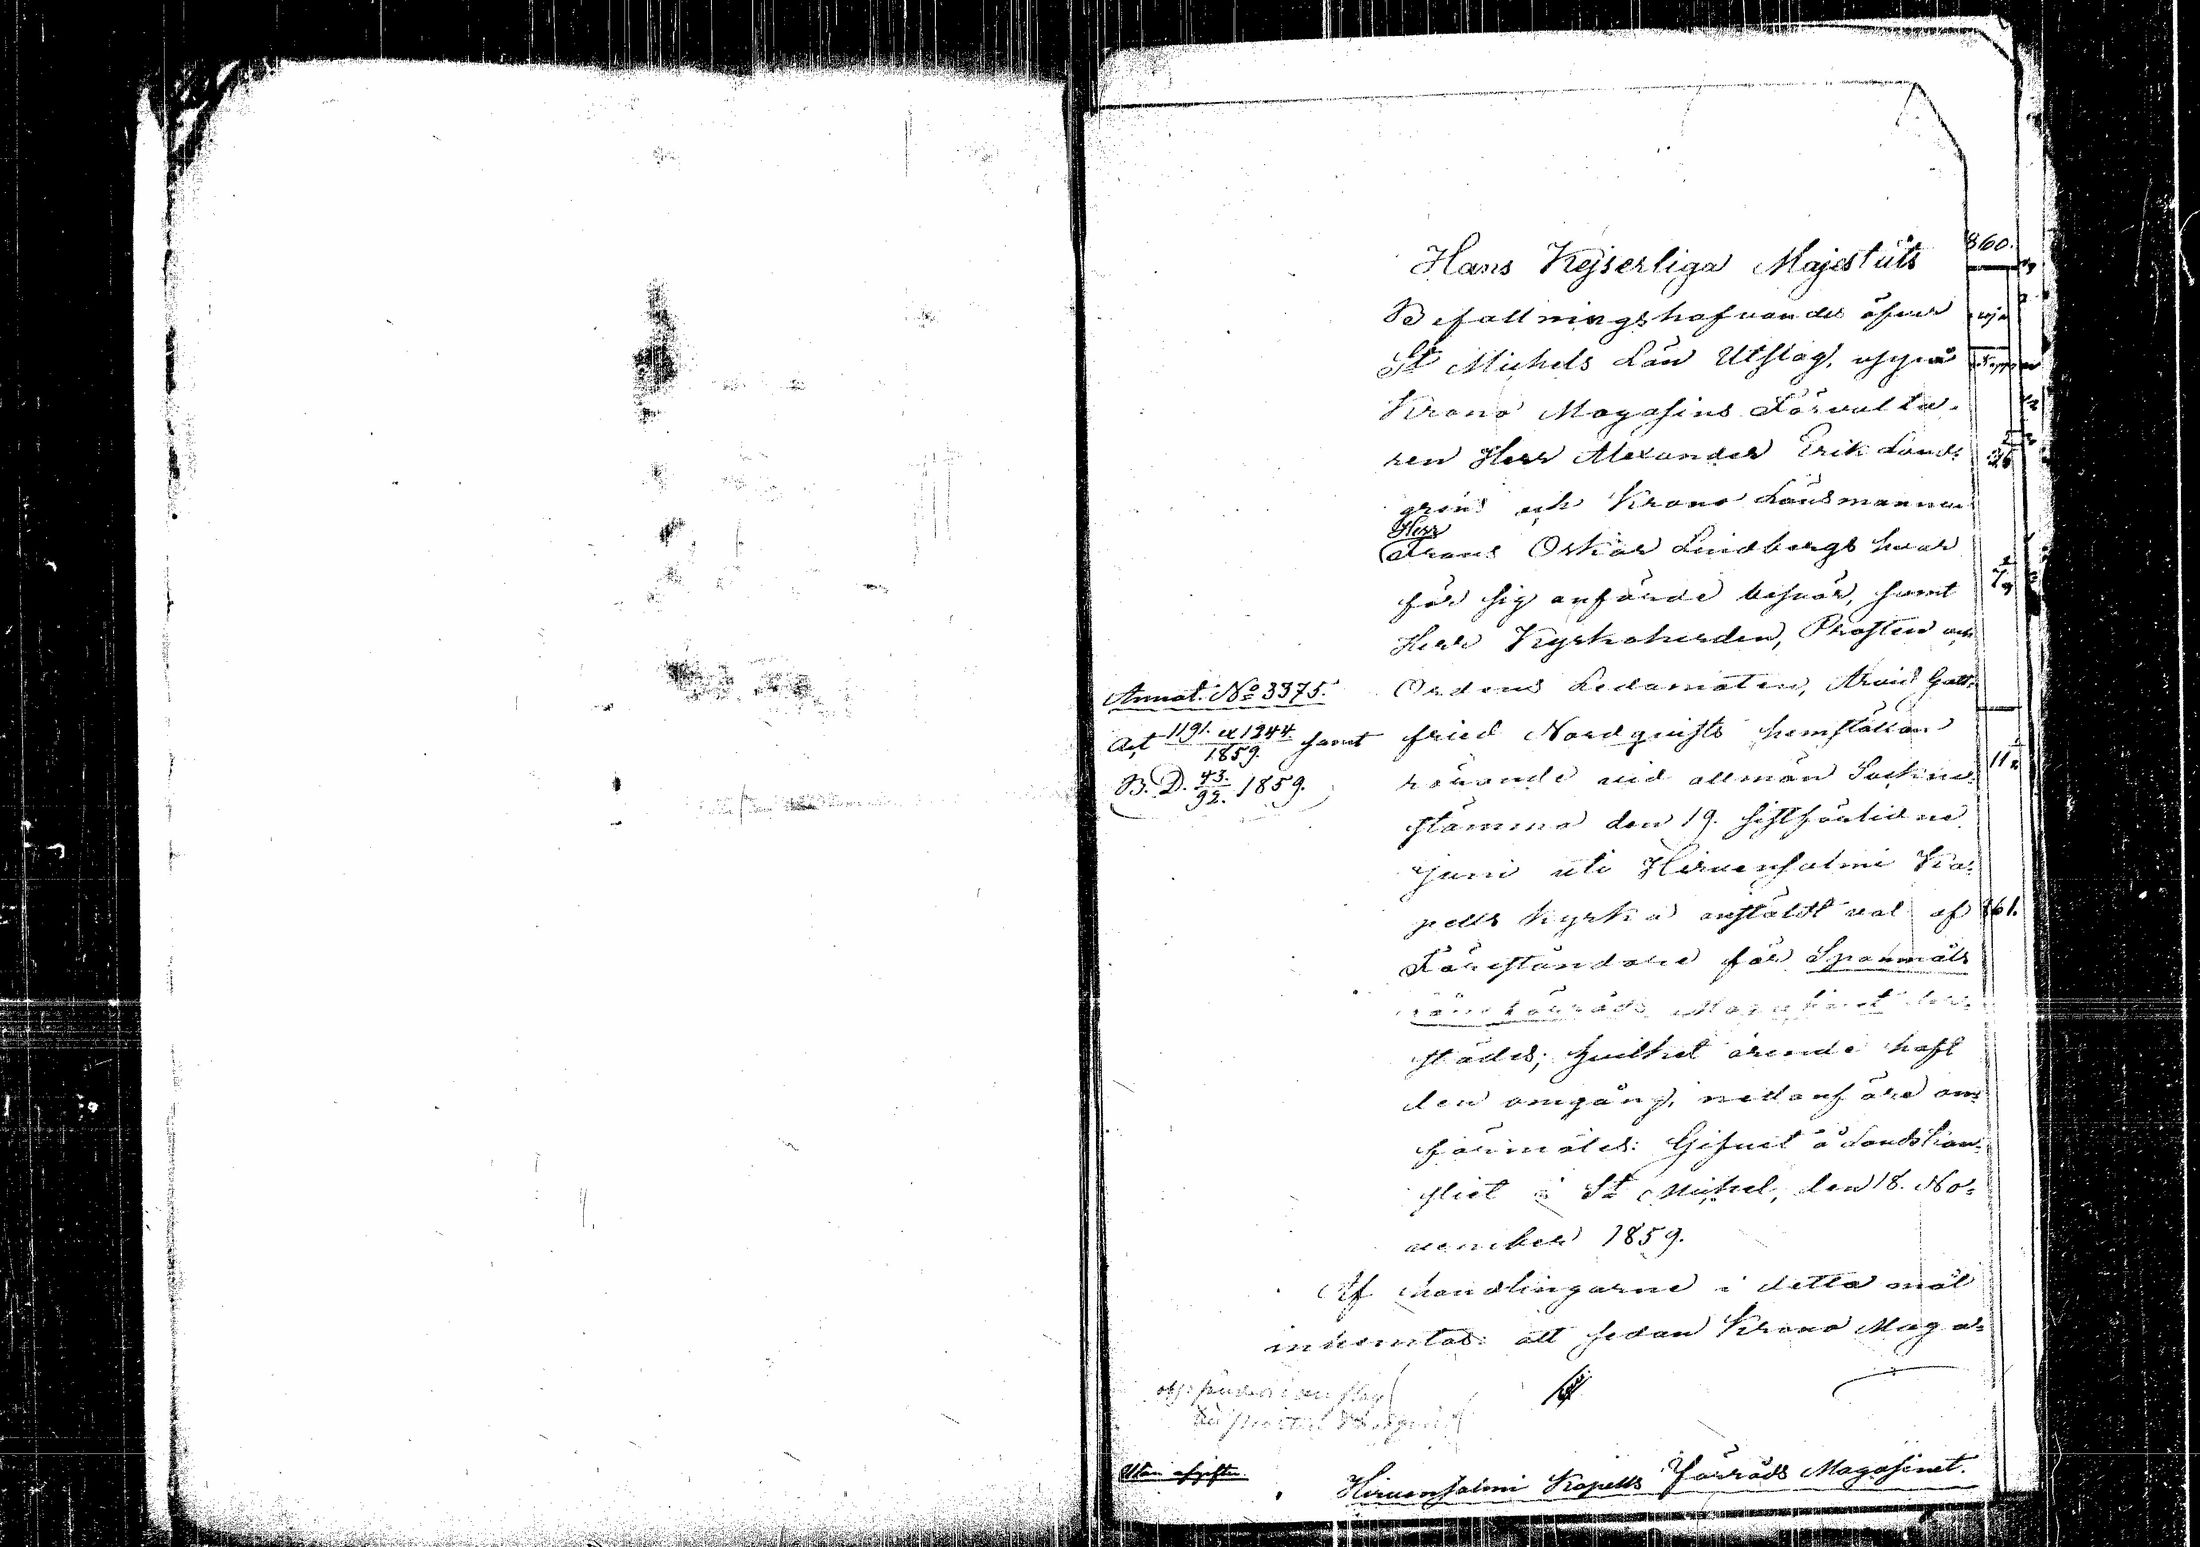 Hans Kejserliga Majestäts
Befallningshafvandes öfver
St Michels Län Utslag, uppå
Krono Magasins Förvalta-
ren Herr Alexander Erik Lund-
grens och Krono Länsmannen
Herr
Frans Oskar Lindbergs hvar
för sig anförde besvär, samt
Herr Kyrkoherden, Prosten och
Annot. No 3375.
Ordens Ledamoten, Arvid Gott-
Act 1191. et 1244 / 1859. samt
fried Nordqvists hemställan
B. D. 43. / 92. 1859.
rörande vid allmän Sockne-
stämma den 19. sistförlidne
Juni uti Hirvensalmi Ka-
pells kyrka anstäldt val af
Föreståndare för Spanmåls
Magasinet der-
städes; hvilket ärende haft
den omgång, nedanföre om-
förmäles: Gifvet å Landskan-
sliet i St Michel, den 18. No-
vember 1859.
Af handlingarne i detta mål
inhemtas: att sedan Krono Maga-
Utan afgifter.
Hirvensalmi Kapells Förråds Magasinet.
860.
861.